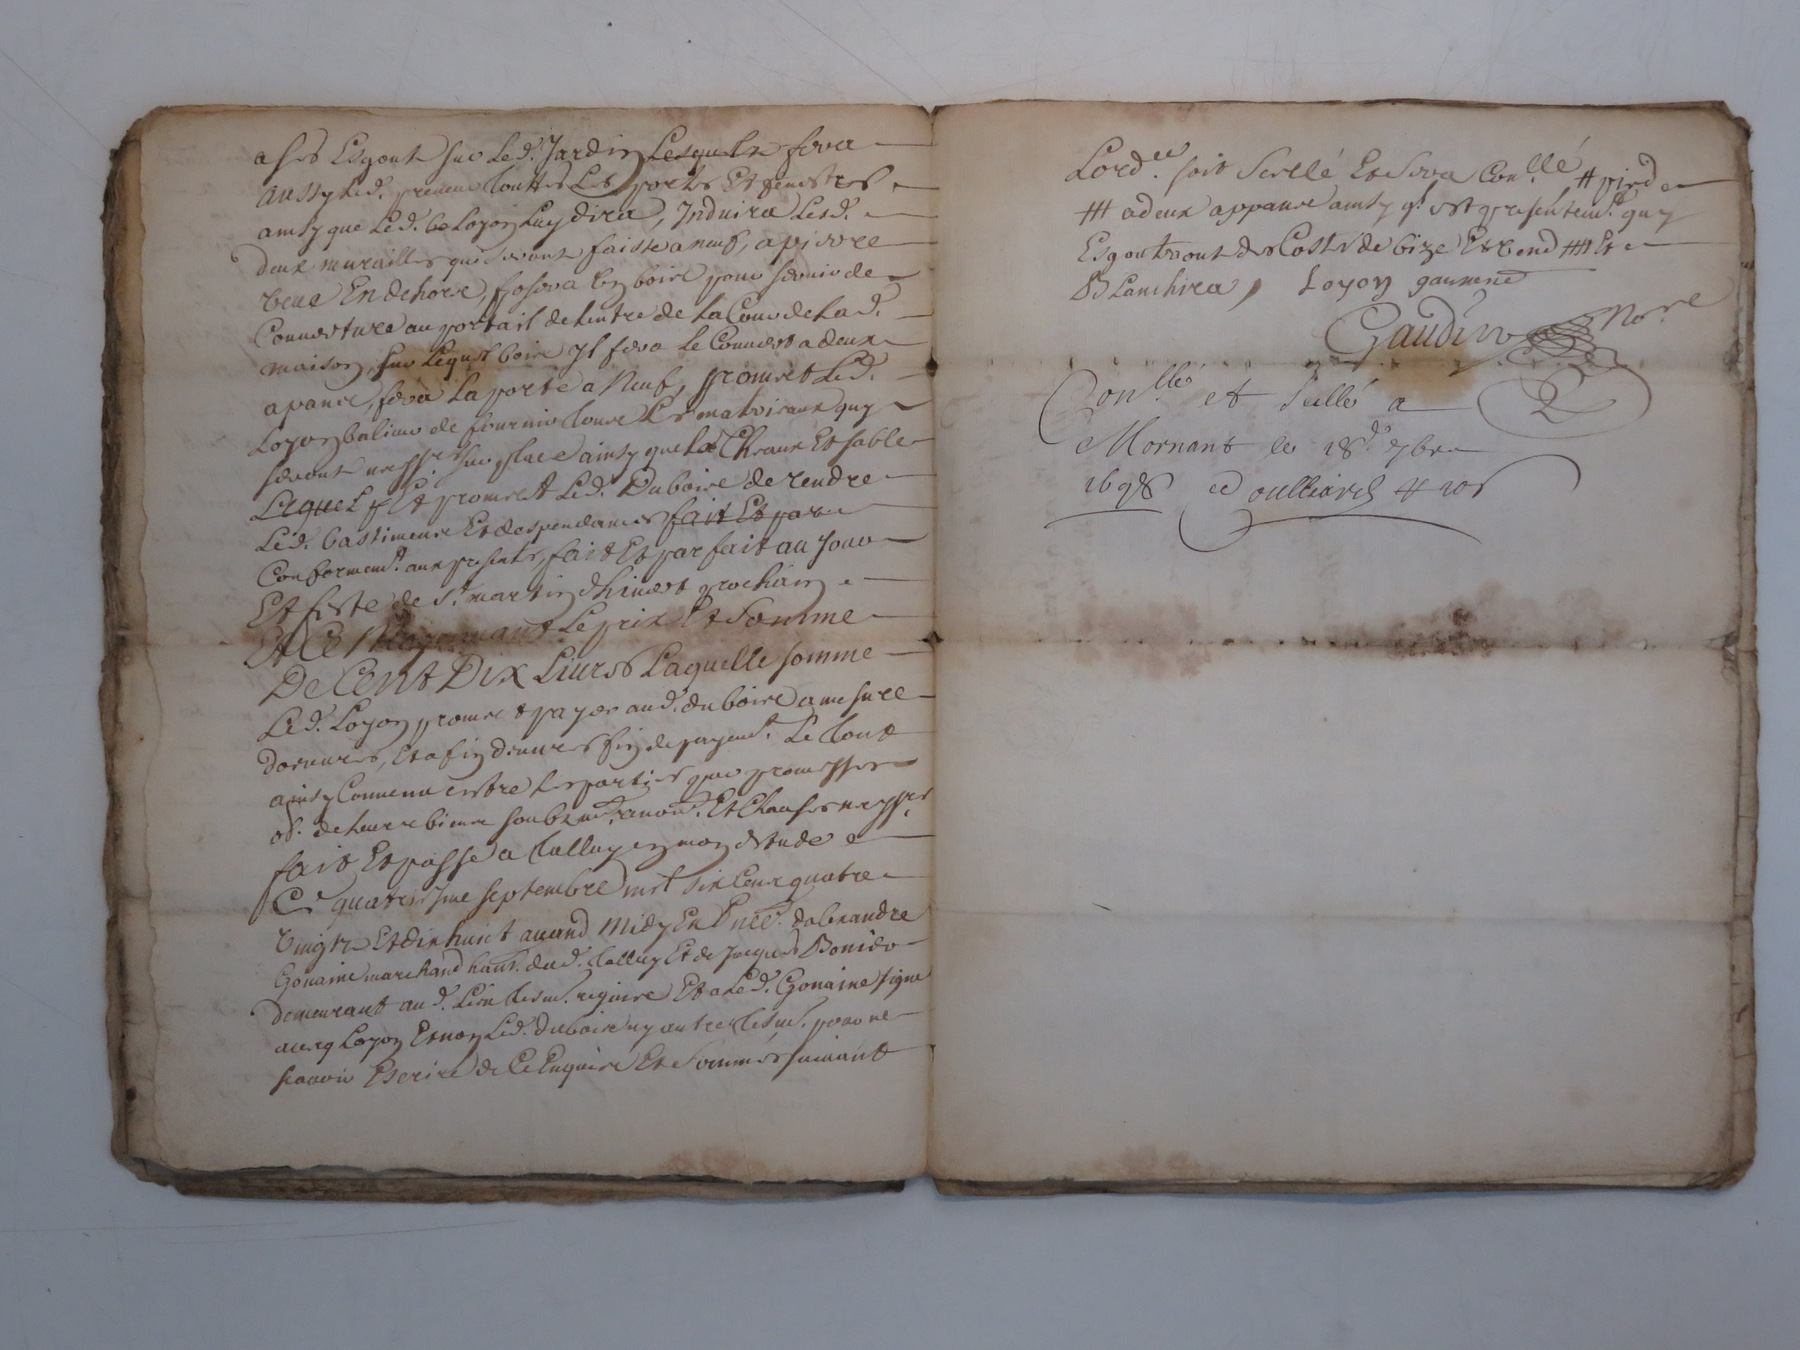 a ses Esgout sur Led. Jardin Lesquels fera
aussy Led. preneur touttes Les portes Et fenestres
ainsy que Led. Loyon Luy dira, Induira Lesd.
deux murailles qui seront faiste a neuf, a pierre
veue En dehors, posera les bois pour servir de
Couverture au portail de Lentre de La Cour de Lad.
maison, sur Lequel bois Il fera Le Couvert a deux
apance, fera La porte a Neuf, promet Led.
Loyon de fournir tous Les materiaux quy
seront ness.res sur place ainsy que la Chaux Et sable
Lequel Et promet Led. Duboire de rendre
Led. bastiment Et despendances fait Et par
Conformem.t aux presentes, fait Et parfait au Jour
Et feste de St martin dhivert prochain
Et Ce Moyennant Le prix Et Somme
De Cent Dix Livres Laquelle somme
Led. Loyon promet payer aud. duboire a mesure
doeuvres, Et a fin doeuvres fin de payem.t Le tout
ainsy Convenu entre Les parties par promesses
ob. de leurs biens soubm. renon. Et Clauses ness.res
fait Et passé a Talluy en mon estude
Ce quatriesme septembre mil six Cent quatre
vingts Et dix huict avand Midy En p.nce
Gonaine marchand hant. dud. Talluy Et de Jacques
demeurant aud. Lieu tesm. requis Et a Led. Gonaine signe
avecq Loyon Et non Led. duboire ny autre tesm. pour ne
scavoir Escrire de Ce Enquis Et Sommés suivant
Lord.ce soit scellé Et sera Con.llé # pied
## a deux appance ainsy q.l est presentem.t quy
Esgouttront des Costés de bize Et vend ### Et
Blanchira, Loyon gaunene
Gaudin No.re
Con.llé et scellé a
Mornant le 18.e 7bre
1698